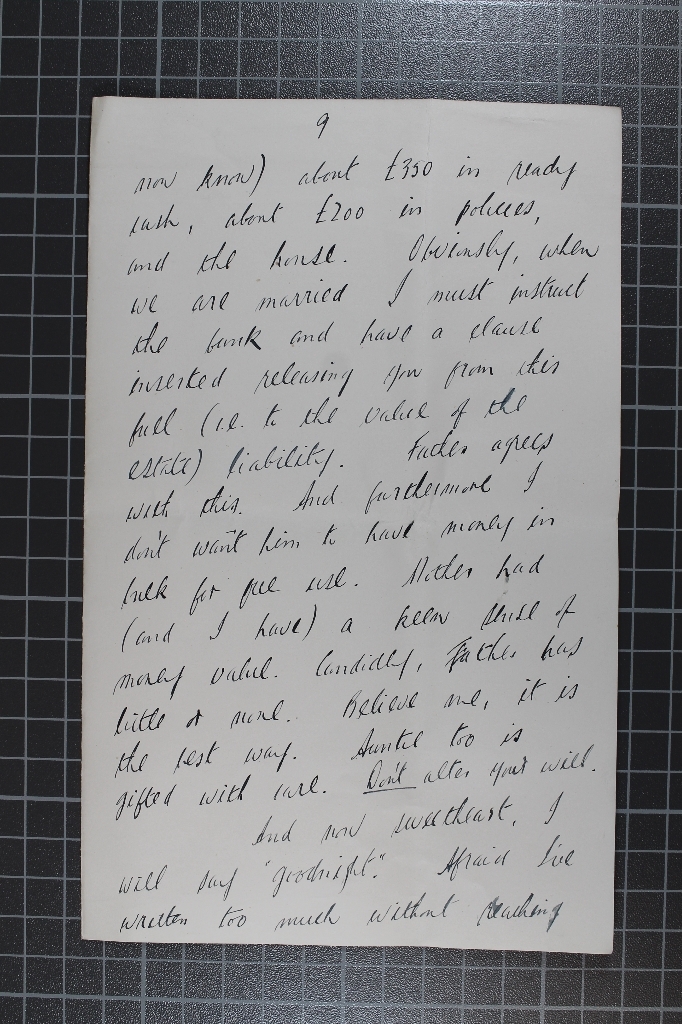 9
now know) about £350 in ready
cash, about £200 in policies,
and the house. Obviously, when
we are married I must instruct
the bank and have a clause
inserted releasing you from this
full (i.e. to the value of the
estate) liability. Father agrees
with this. And furthermore I
don't want him to have money in
bulk for free use. Mother had
(and I have) a keen sense of
money value. Candidly, Father has
little or none. Believe me, it is
the best way. Auntie too is
gifted with care. Don't alter your will.
And now sweetheart, I
will say "goodnight." Afraid I've
written too much without reaching